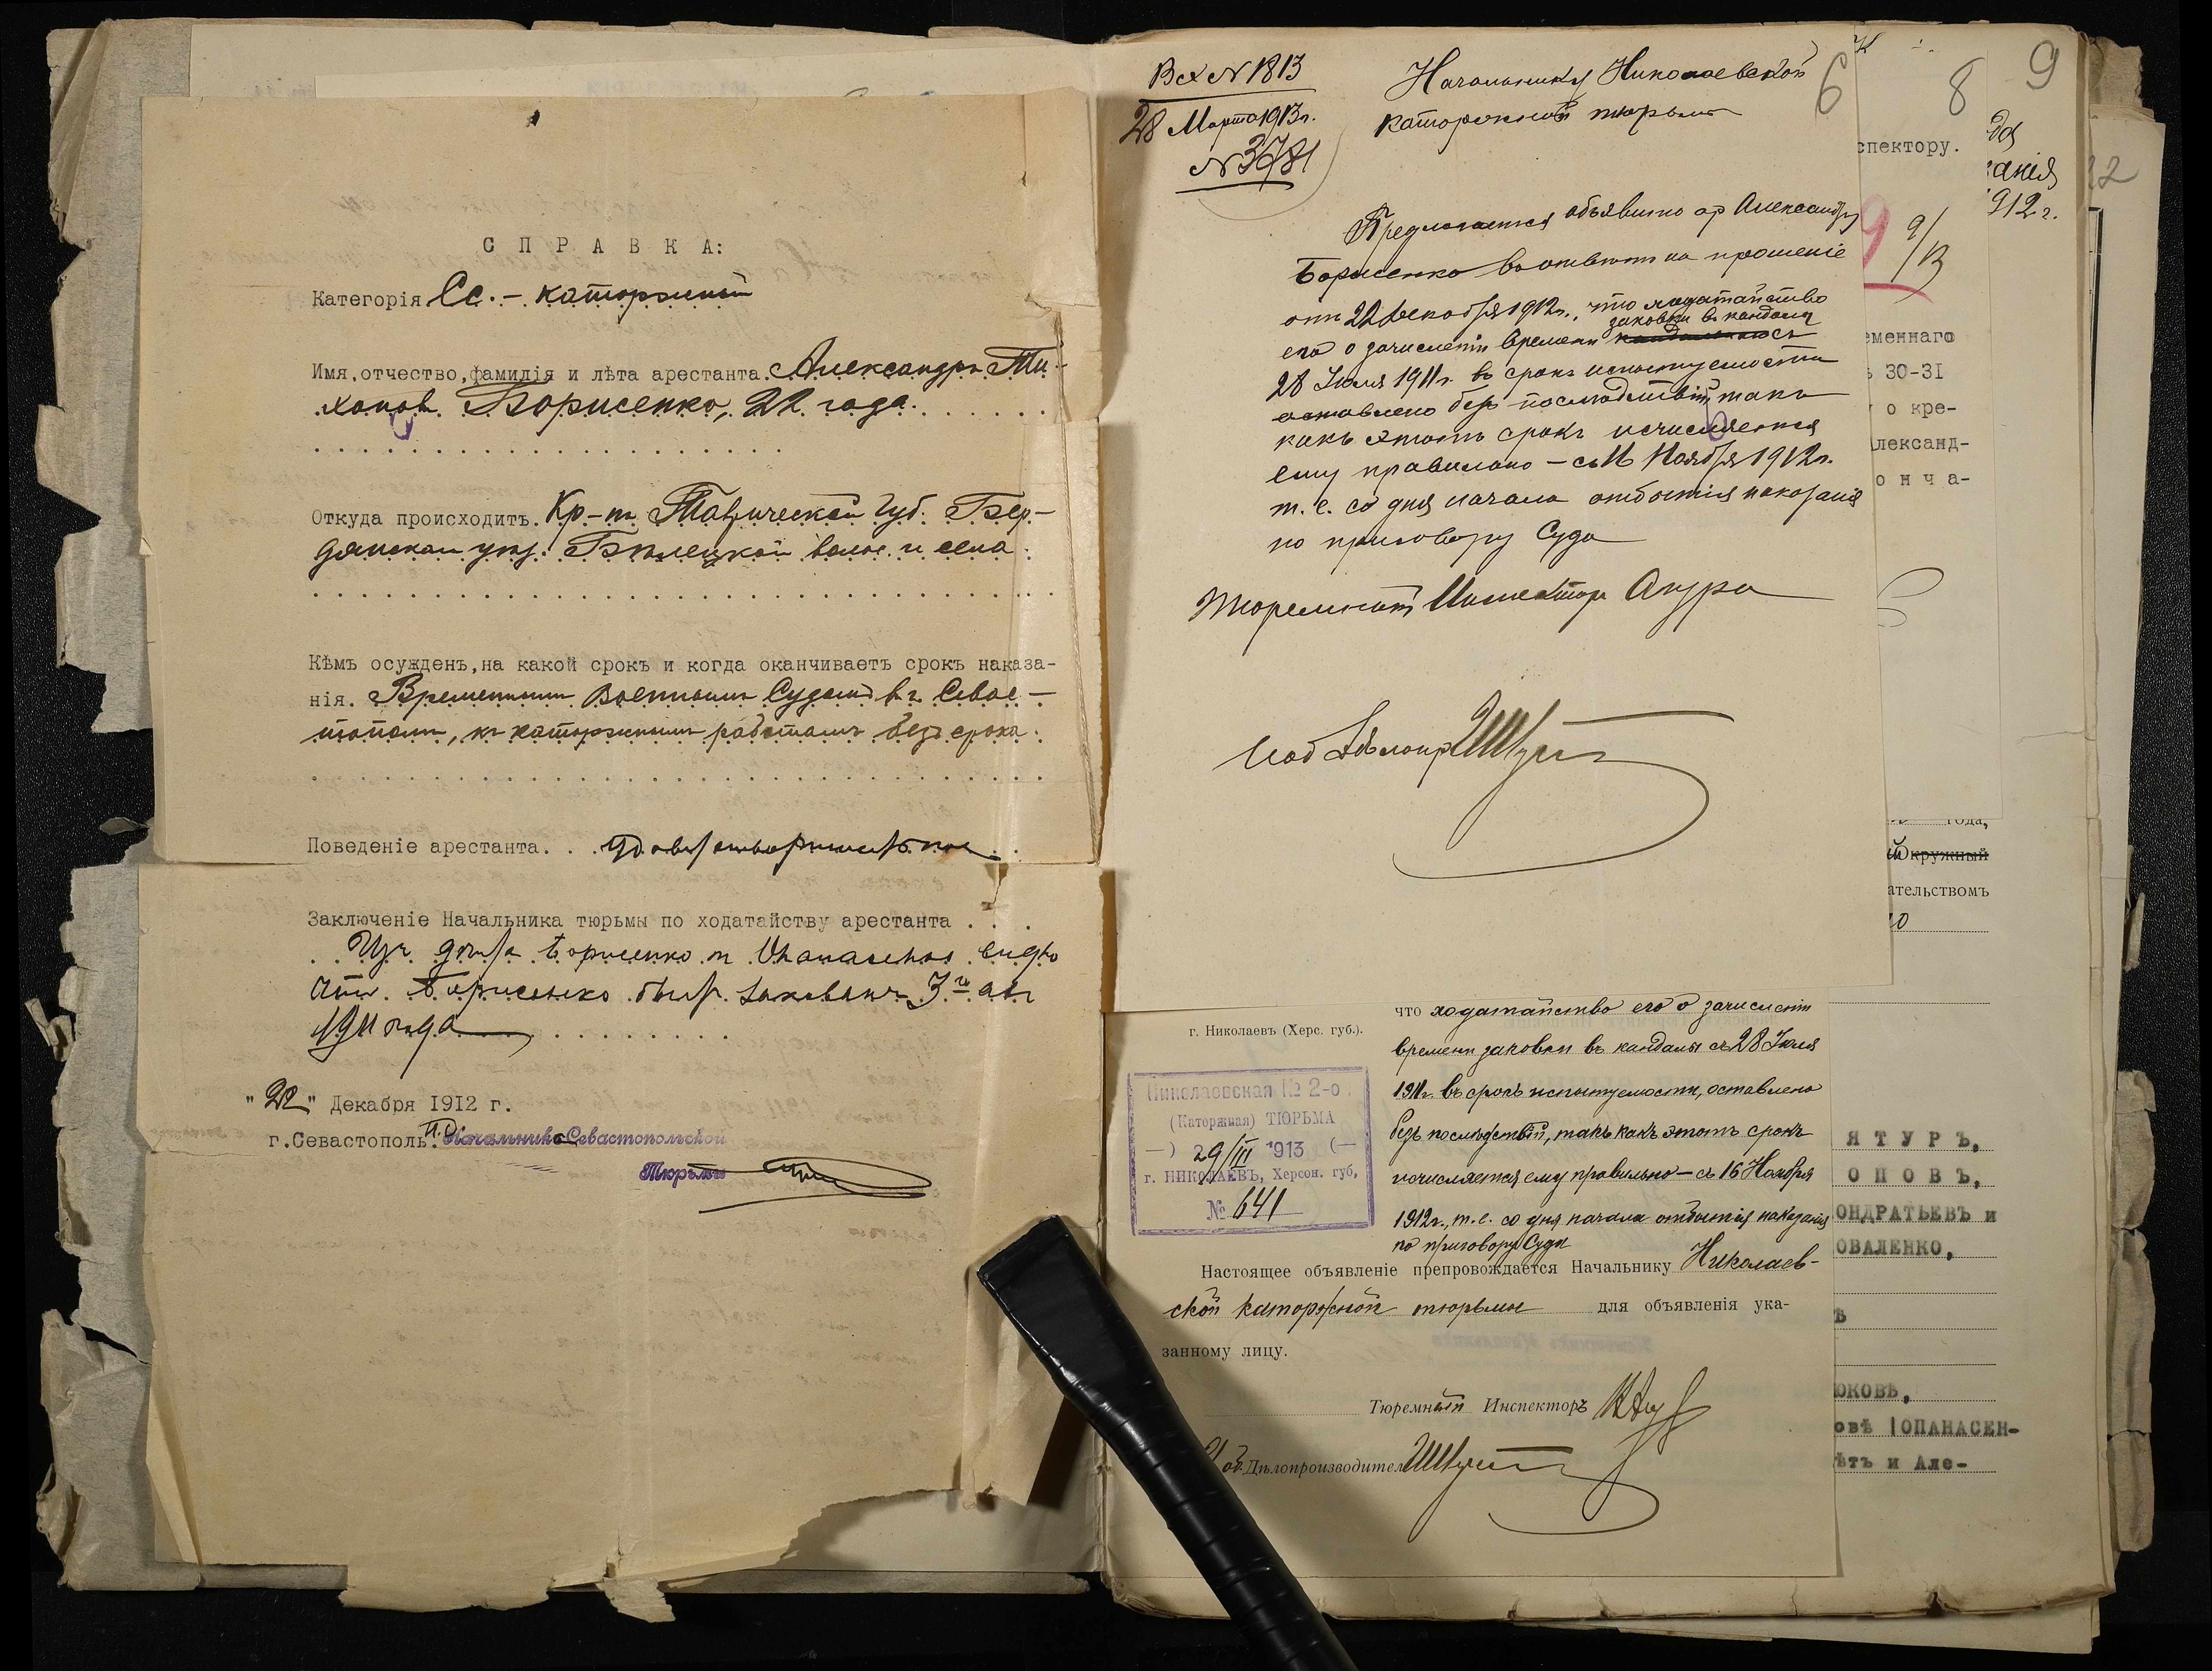 С П Р А В К А:
Категорія Сс.- каторжный
Имя, отчество, фамилія и лѣта арестанта. Александръ Ти-
хоновъ Борисенко, 22 года.
Откуда происходитъ. Кр-нъ Таврической губ. Бер-
дянскаго уѣз. волос. и села.
Кѣмъ осужденъ, на какой срокъ и когда оканчиваетъ срокъ наказа-
нія. Временнымъ Военнымъ Судомъ въ г. Севас-
тополѣ, къ каторжнымъ работамъ безъ срока.
Поведеніе арестанта. . . удовлетворительное
Заключеніе Начальника тюрьмы по ходатайству арестанта . . .
Изъ дѣла Борисенко и видно
что Борисенко былъ закованъ 3го авг
1911 года
"22" Декабря 1912 г.
г. Севастополь. Начальникъ Севастопольской
Тюрьмы
Вх N 1813
28 Марта 1913г.
N 3781
Начальнику Николаевской
каторжной тюрьмы
6
Предлагается объявить ар Александру
Борисенко въ отвѣтъ на прошеніе
отъ 22 Декабря 1912г., что ходатайство
заковки въ кандалы
его о зачисленіи времени съ
28 Іюля 1911г. въ срокъ испытуемости
оставлено безъ послѣдствій, такъ
какъ этотъ срокъ исчисляется
ему правильно – съ 16 Ноября 1912г.
т. е. со дня начала отбытія наказанія
по приговору Суда
Тюремный Инспекторъ
Иоб Дѣлопр
что ходатайство его о зачисленіи
времени заковки въ кандалы съ 28 Іюля
1911г. въ срокъ испытуемости, оставлено
безъ послѣдствій, такъ какъ этотъ срокъ
исчисляется ему правильно – съ 16 Ноября
1912г., т. е. со дня начала отбытія наказанія
по приговору Суда
г. Николаевъ (Херс. губ.).
Николаевская № 2-о
(Каторжная) ТЮРЬМА
29/III 1913
г. НИКОЛАЕВЪ, Херсон. губ.
№ 641
Настоящее объявленіе препровождается Начальнику Николаев-
ской каторжной тюрьмы для объявленія ука-
занному лицу.
Тюремный Инспекторъ
Дѣлопроизводитель
8
спектору.
9/13
еменнаго
ъ 30-31
о кре-
лександ-
о н ч а-
9
анія
912 г.
22
года,
кружный
ательствомъ
Я Т У Р Ъ,
О П О В Ъ,
ОНДРАТЬЕВЪ и
ОВАЛЕНКО,
ЮКОВЪ,
овѣ ОПАНАСЕН-
ѣтъ и Але-